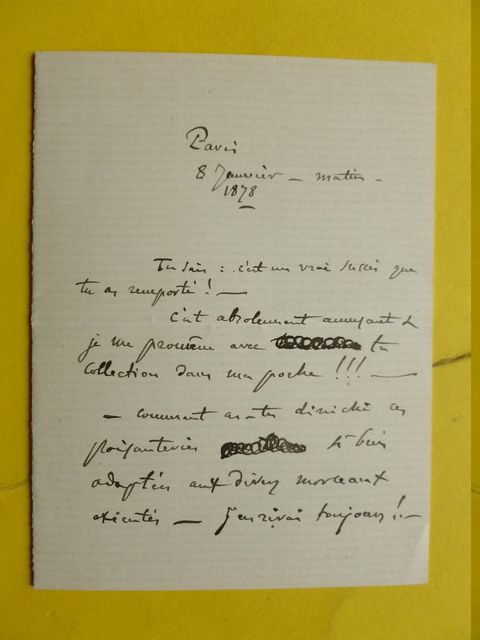 Paris
8 Janvier _ matin _
1878
Tu sais : c'est un vrai succès que
tu as remporté ! _
c'est absolument amusant &
je me promène avec ta
collection dans ma poche !!! _
_ comment as-tu déniché ces
plaisanteries si bien
adaptées aux divers morceaux
exécutés _ J'en rirai toujours !! _